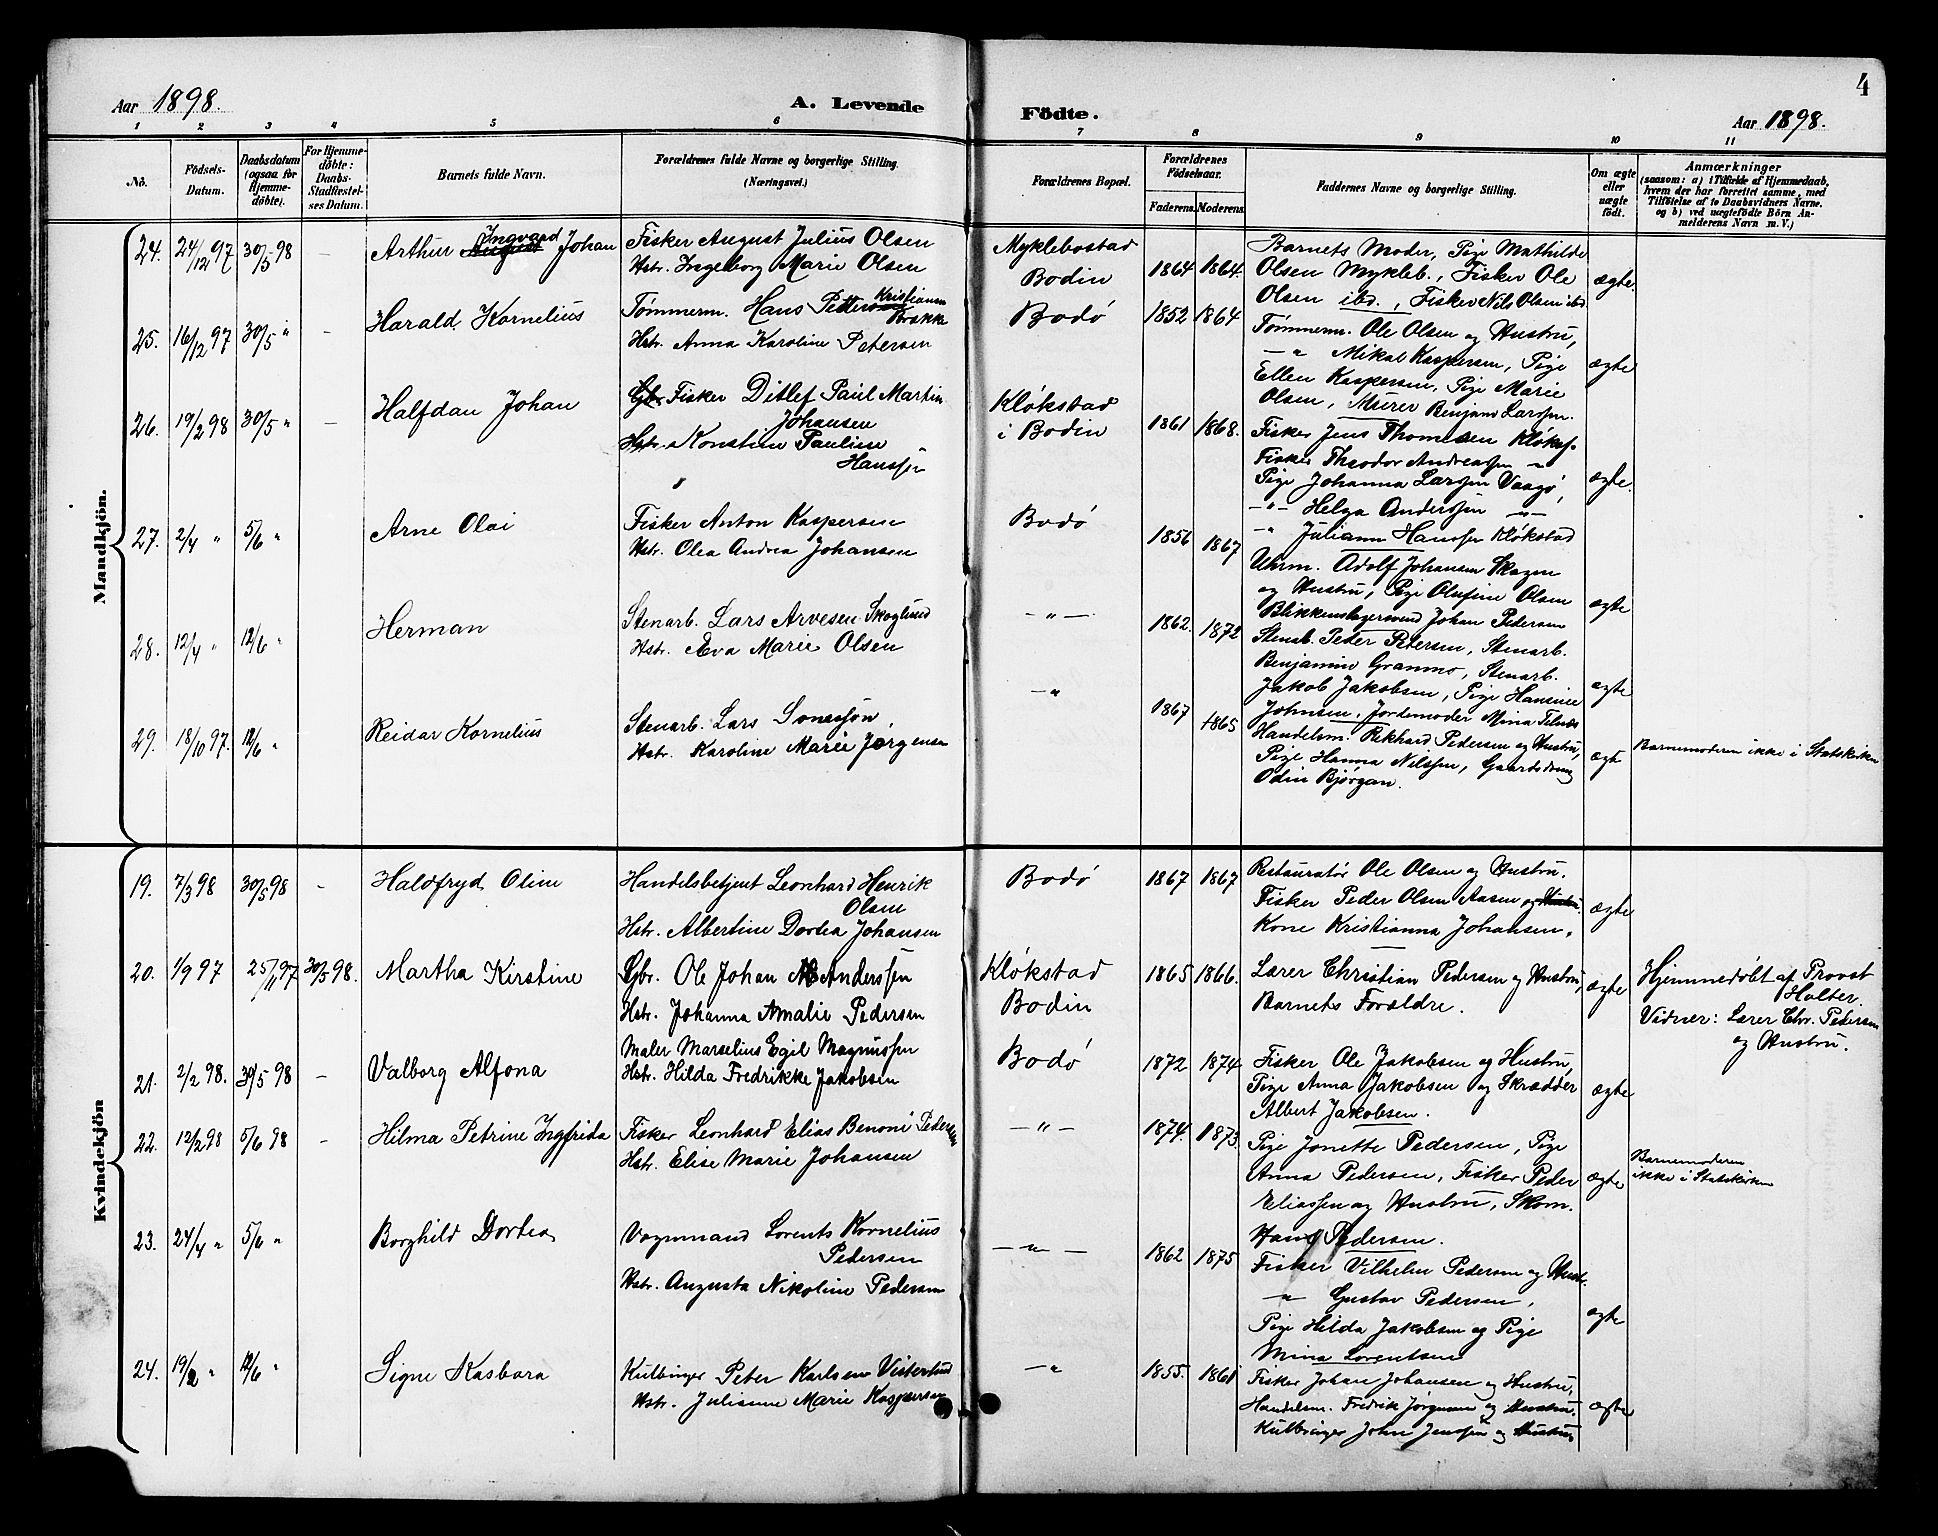 4
Aar 1898.
A. Levende
Födte.
Aar 1898.
1 2 3 4 5 6 7 8 9 10 11
No.
Födsels-Datum.
Daabsdatum (ogsaa for Hjemme-döbte).
For Hjemme-döbte: Daabs-Stadfæstel-ses Datum.
Barnets fulde Navn.
Forældrenes fulde Navne og borgerlige Stilling.
(Næringsvei.)
Forældrenes Bopæl.
Forældrenes Födselsaar.
Faderens. Moderens.
Faddernes Navne og borgerlige Stilling.
Om ægte eller uægte födt.
Anmærkninger
(saasom: a) i Tilfælde af Hjemmedaab,
hvem der har forrettet samme, med
Tilföielse af to Daabsvidners Navne.
og b) ved uægtefödte Börn An-
melderens Navn m. V.)
Mandkjön.
24. 24/12 97 30/5 98 - Arthur August Ingvard Johan
Fisker August Julius Olsen
Hstr. Ingeborg Marie Olsen
Myklebostad
Bodin
1864 1864.
Barnets Moder, Pige Mathilde
Olsen Mykleb., Fisker Ole
Olsen ibd., Fisker Nils Olsen ibd
ægte.
25. 16/12 97 30/5 " - Harald Kornelius
Tømmerm. Hans Petter Kristiansen
Brække
Hstr. Anna Karoline Petersen
Bodø
1852 1864
Tømmerm. Ole Olsen og Hustru,
—"— Mikal Kaspersen, Pige
Ellen Kaspersen, Pige Marie
Olsen, Murer Benjam. Larssen.
ægte
26. 19/2 98 30/5 " - Halfdan Johan
Gbr. Fisker Ditlef Paul Martin
Johansen
Hstr. Konstine Pauline
Hanssen
Kløkstad
i Bodin
1861 1868.
Fisker Jens Thomesen Kløkst.
Fisker Theodor Andreassen —"—
Pige Johanna Larssen Vaagø,
—"— Helga Anderssen —"—
—"— Juliann Hanssen Kløkstad
ægte.
27. 2/4 " 5/6 " Arne Olai
Fisker Anton Kaspersen
Hstr. Olea Andrea Johansen
Bodø
1856 1867
Uhrm. Adolf Johansen Skagen
og Hustru, Pige Olufine Olsen
Blikkenslagersvend Johan Pedersen
ægte
28. 12/4 " 12/6 " Herman
Stenarb. Lars Arvesen Skoglund
Hstr. Eva Marie Olsen
—"—
1862. 1872
Stenarb. Peder Petersen, Stenarb.
Benjamin Granmo, Stenarb.
Jakob Jakobsen, Pige Hansine
Johnsen, Jordemoder Mina
ægte
29. 18/10 97. 12/6 " Reidar Kornelius
Stenarb. Lars Sonesson,
Hstr. Karoline Marie Jørgensen
—"
1867 1865
Handelsm. Rikhard Pedersen og Hustru,
Pige Hanna Nilssen, Gaardsdreng
Odin Bjørgan.
ægte
Barnemoderen ikke i Statskirken
Kvindekjön
19. 7/3 98 30/5 98 - Haldfryd Oline
Handelsbetjent Leonhard Henrik
Olsen
Hstr. Albertine Dortea Johansen
Bodø
1867 1867
Restauratør Ole Olsen og Hustru.
Fisker Peder Olsen Aasen og Hustru.
Kone Kristianna Johansen.
ægte
20. 1/9 97 25/11 97 30/5 98. Martha Kirstine
Gbr. Ole Johan Anderssen
Hstr. Johanna Amalie Pedersen
Kløkstad
Bodin
1865 1866.
Lærer Christian Pedersen og Hustru,
Barnets Forældre.
ægte
Hjemmedøbt af Provst
Halter.
Vidner: Lærer Chr. Pedersen
og Hustru.
21. 2/2 98. 30/5 98 - Valborg Alfona
Maler Marselius Egil Magnussen
Hstr. Hilda Fredrikke Jakobsen
Bodø
1872 1874
Fisker Ole Jakobsen og Hustru,
Pige Anna Jakobsen og Skrædder
Albert Jakobsen.
ægte
22. 12/2 98 5/6 98 - Hilma Petrine Ingfrida
Fisker Leonhard Elias Benoni Pedersen
Hstr. Elise Marie Johansen
—"—
1874. 1873.
Pige Jonette Pedersen, Pige
Anna Pedersen, Fisker Peder
Eliassen og Hustru, Skom.
Hans Pedersen.
ægte
Barnemoderen
ikke i Statskirken
23. 24/4 " 5/6 " Borghild Dortea
Vognmand Lorents Kornelius
Pedersen
Hstr. Augusta Nikoline Pedersen
—"—
1862 1875
Fisker Vilhelm Pedersen og Hust.
—"— Gustav Pedersen,
Pige Hilda Jakobsen og Pige
Mina Lorentsen
ægte
24. 19/2 " 12/6 " Signe Kasbara
Kulbringer Peter Karlsen Vesterlund
Hstr. Julianne Marie Kaspersen
—"
1855. 1861
Fisker Johan Johansen og Hustru,
Handelsm. Fredrik Jørgensen og Hustru.
Kulbringer John Jenssen og Hustru.
ægte